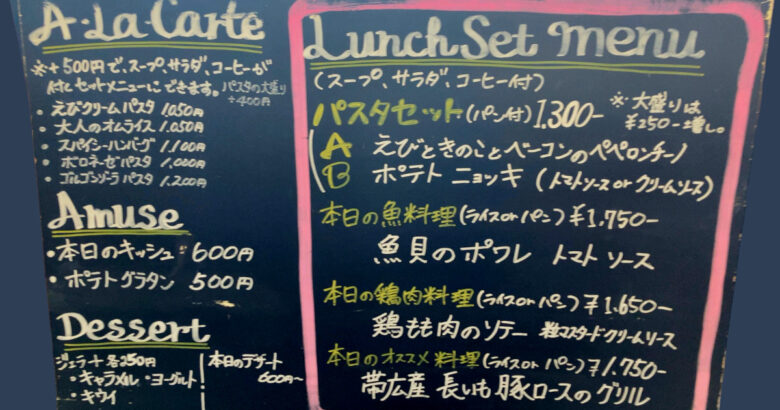 A・La Carte
※+500円で、スープ、サラダ、コーヒーが
付いたセットメニューにできます。パスタの大盛り
+400円
・えびクリームパスタ 1.050円
・大人のオムライス 1.050円
・スパイシーハンバーグ 1.100円
・ボロネーゼパスタ 1.000円
・ゴルゴンゾーラパスタ 1.200円
Amuse
・本日のキッシュ 600円
・ポテトグラタン 500円
Dessert
ジェラート 各250円
・キャラメル・ヨーグルト
・キウイ
本日のデザート
600円〜
Lunch Set menu
(スープ、サラダ、コーヒー付)
パスタセット(パン付)1.300-
※大盛りは
¥250-増し。
A えびときのことベーコンのペペロンチーノ
B ポテトニョッキ (トマトソース or クリームソース)
本日の魚料理(ライス or パン)¥1.750-
魚貝のポワレ トマトソース
本日の鶏肉料理(ライス or パン)¥1.650-
鶏もも肉のソテー 粒マスタードクリームソース
本日のオススメ料理(ライス or パン)¥1.750-
帯広産 長いも豚ロースのグリル